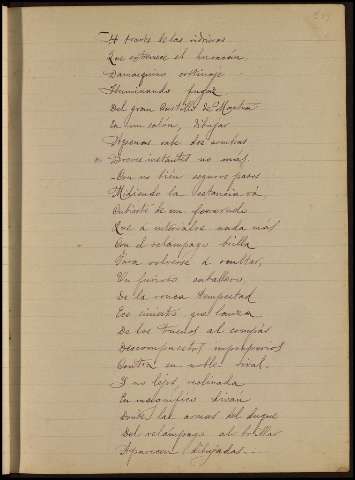 A través de las vidrieras
Que estremece el huracán,
Damasquino cortinaje
Iluminando fugaz
Del gran Castillo de
En un salón, dibujar
Apenas sabe dos sombras
Breves instantes no mas.
Con no bien seguros pasos
Midiendo la estancia vá
Cubierto de un ferreruelo
Que a intervalos nada más
Con el relámpago brilla
Para volverse a ocultar,
Un caballero,
De la ronca tempestad
Eco siniestro, que lanza
De los truenos al compás
Descompuestos improperios
Contra un noble rival.
Y no lejos, reclinada
En magnífico divan
Donde las armas del duque
Del relámpago al brillar
Aparecen dibujadas